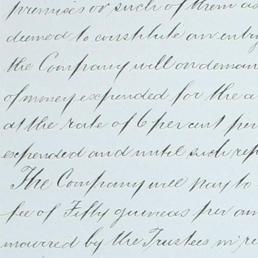 premises or such of them as
deemed to constitute an entry
the Company will on deman
of money expended for the a
at the rate of 6 per cent per
expended and until such rep
The Company will pay to
fee of Fifty guineas per an
incurred by the Trustees in re